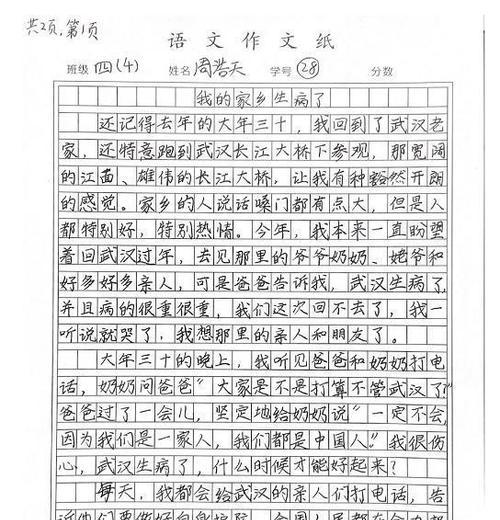 共2页,第1页
语文作文纸
班级 四(4) 姓名 周浩天 学号 28 分数
我的家乡生病了
还记得去年的大年三十，我回到了武汉老
家，还特意跑到武汉长江大桥下参观，那宽阔
的江面、雄伟的长江大桥，让我有种豁然开朗
的感觉。家乡的人说话嗓门都有点大，但是人
都特别好，特别热情。今年，我本来一直盼望
着回武汉过年，去见那里的爷爷奶奶、姥爷和
好多好多亲人，可是爸爸告诉我，武汉生病了，
并且病的很重很重，我们这次回不去了，我一
听说就哭了，我想那里的亲人和朋友了。
大年三十的晚上，我听见爸爸和奶奶打电
话，奶奶问爸爸“大家是不是打算不管武汉了？”
爸爸过了一会儿，坚定地给奶奶说“一定不会，
因为我们是一家人，我们都是中国人。”我很伤
心，武汉生病了，什么时候才能好起来？
每天，我都会给武汉的亲人们打电话，告
诉他们要做好自身防护，全国人民都在